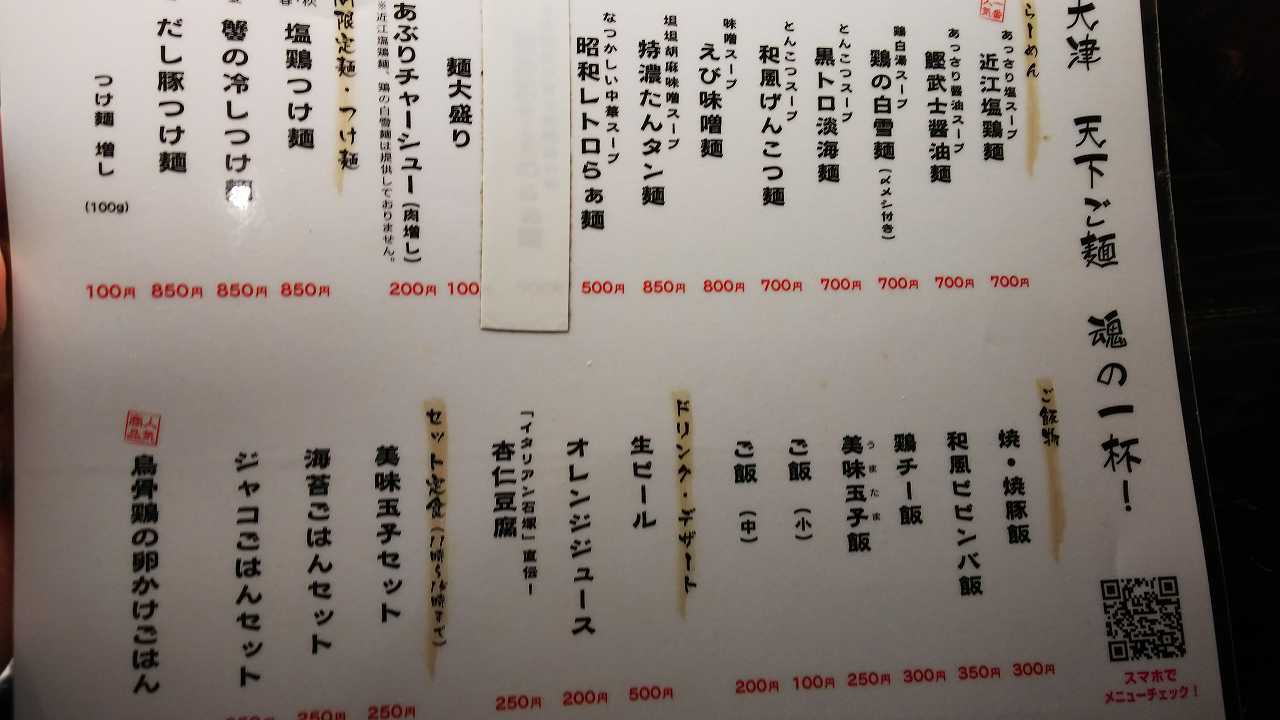 大津 天下ご麺 魂の一杯！
らーめん
一番
人気
あっさり塩スープ
近江塩鶏麺
700円
あっさり醤油スープ
鰹武士醤油麺
700円
鶏白湯スープ
鶏の白雪麺(〆メシ付き)
700円
とんこつスープ
黒トロ淡海麺
700円
とんこつスープ
和風げんこつ麺
700円
味噌スープ
えび味噌麺
800円
坦坦胡麻味噌スープ
特濃たんタン麺
850円
なつかしい中華スープ
昭和レトロらぁ麺
500円
麺大盛り
100
あぶりチャーシュー(肉増し)
200円
※近江塩鶏麺、鶏の白雪麺は提供しておりません。
限定麺・つけ麺
塩鶏つけ麺
850円
蟹の冷しつけ麺
850円
だし豚つけ麺
850円
つけ麺 増し
(100g)
100円
ご飯物
焼・焼豚飯
300円
和風ビビンバ飯
350円
鶏チー飯
300円
うまたま
美味玉子飯
250円
ご飯 (小)
100円
ご飯 (中)
200円
ドリンク・デザート
生ビール
500円
オレンジジュース
200円
「イタリアン石塚」直伝ー
杏仁豆腐
250円
セット定食(11時〜16時まで)
美味玉子セット
250円
海苔ごはんセット
250円
ジャコごはんセット
250円
人気
商品
烏骨鶏の卵かけごはん
スマホで
メニューチェック！